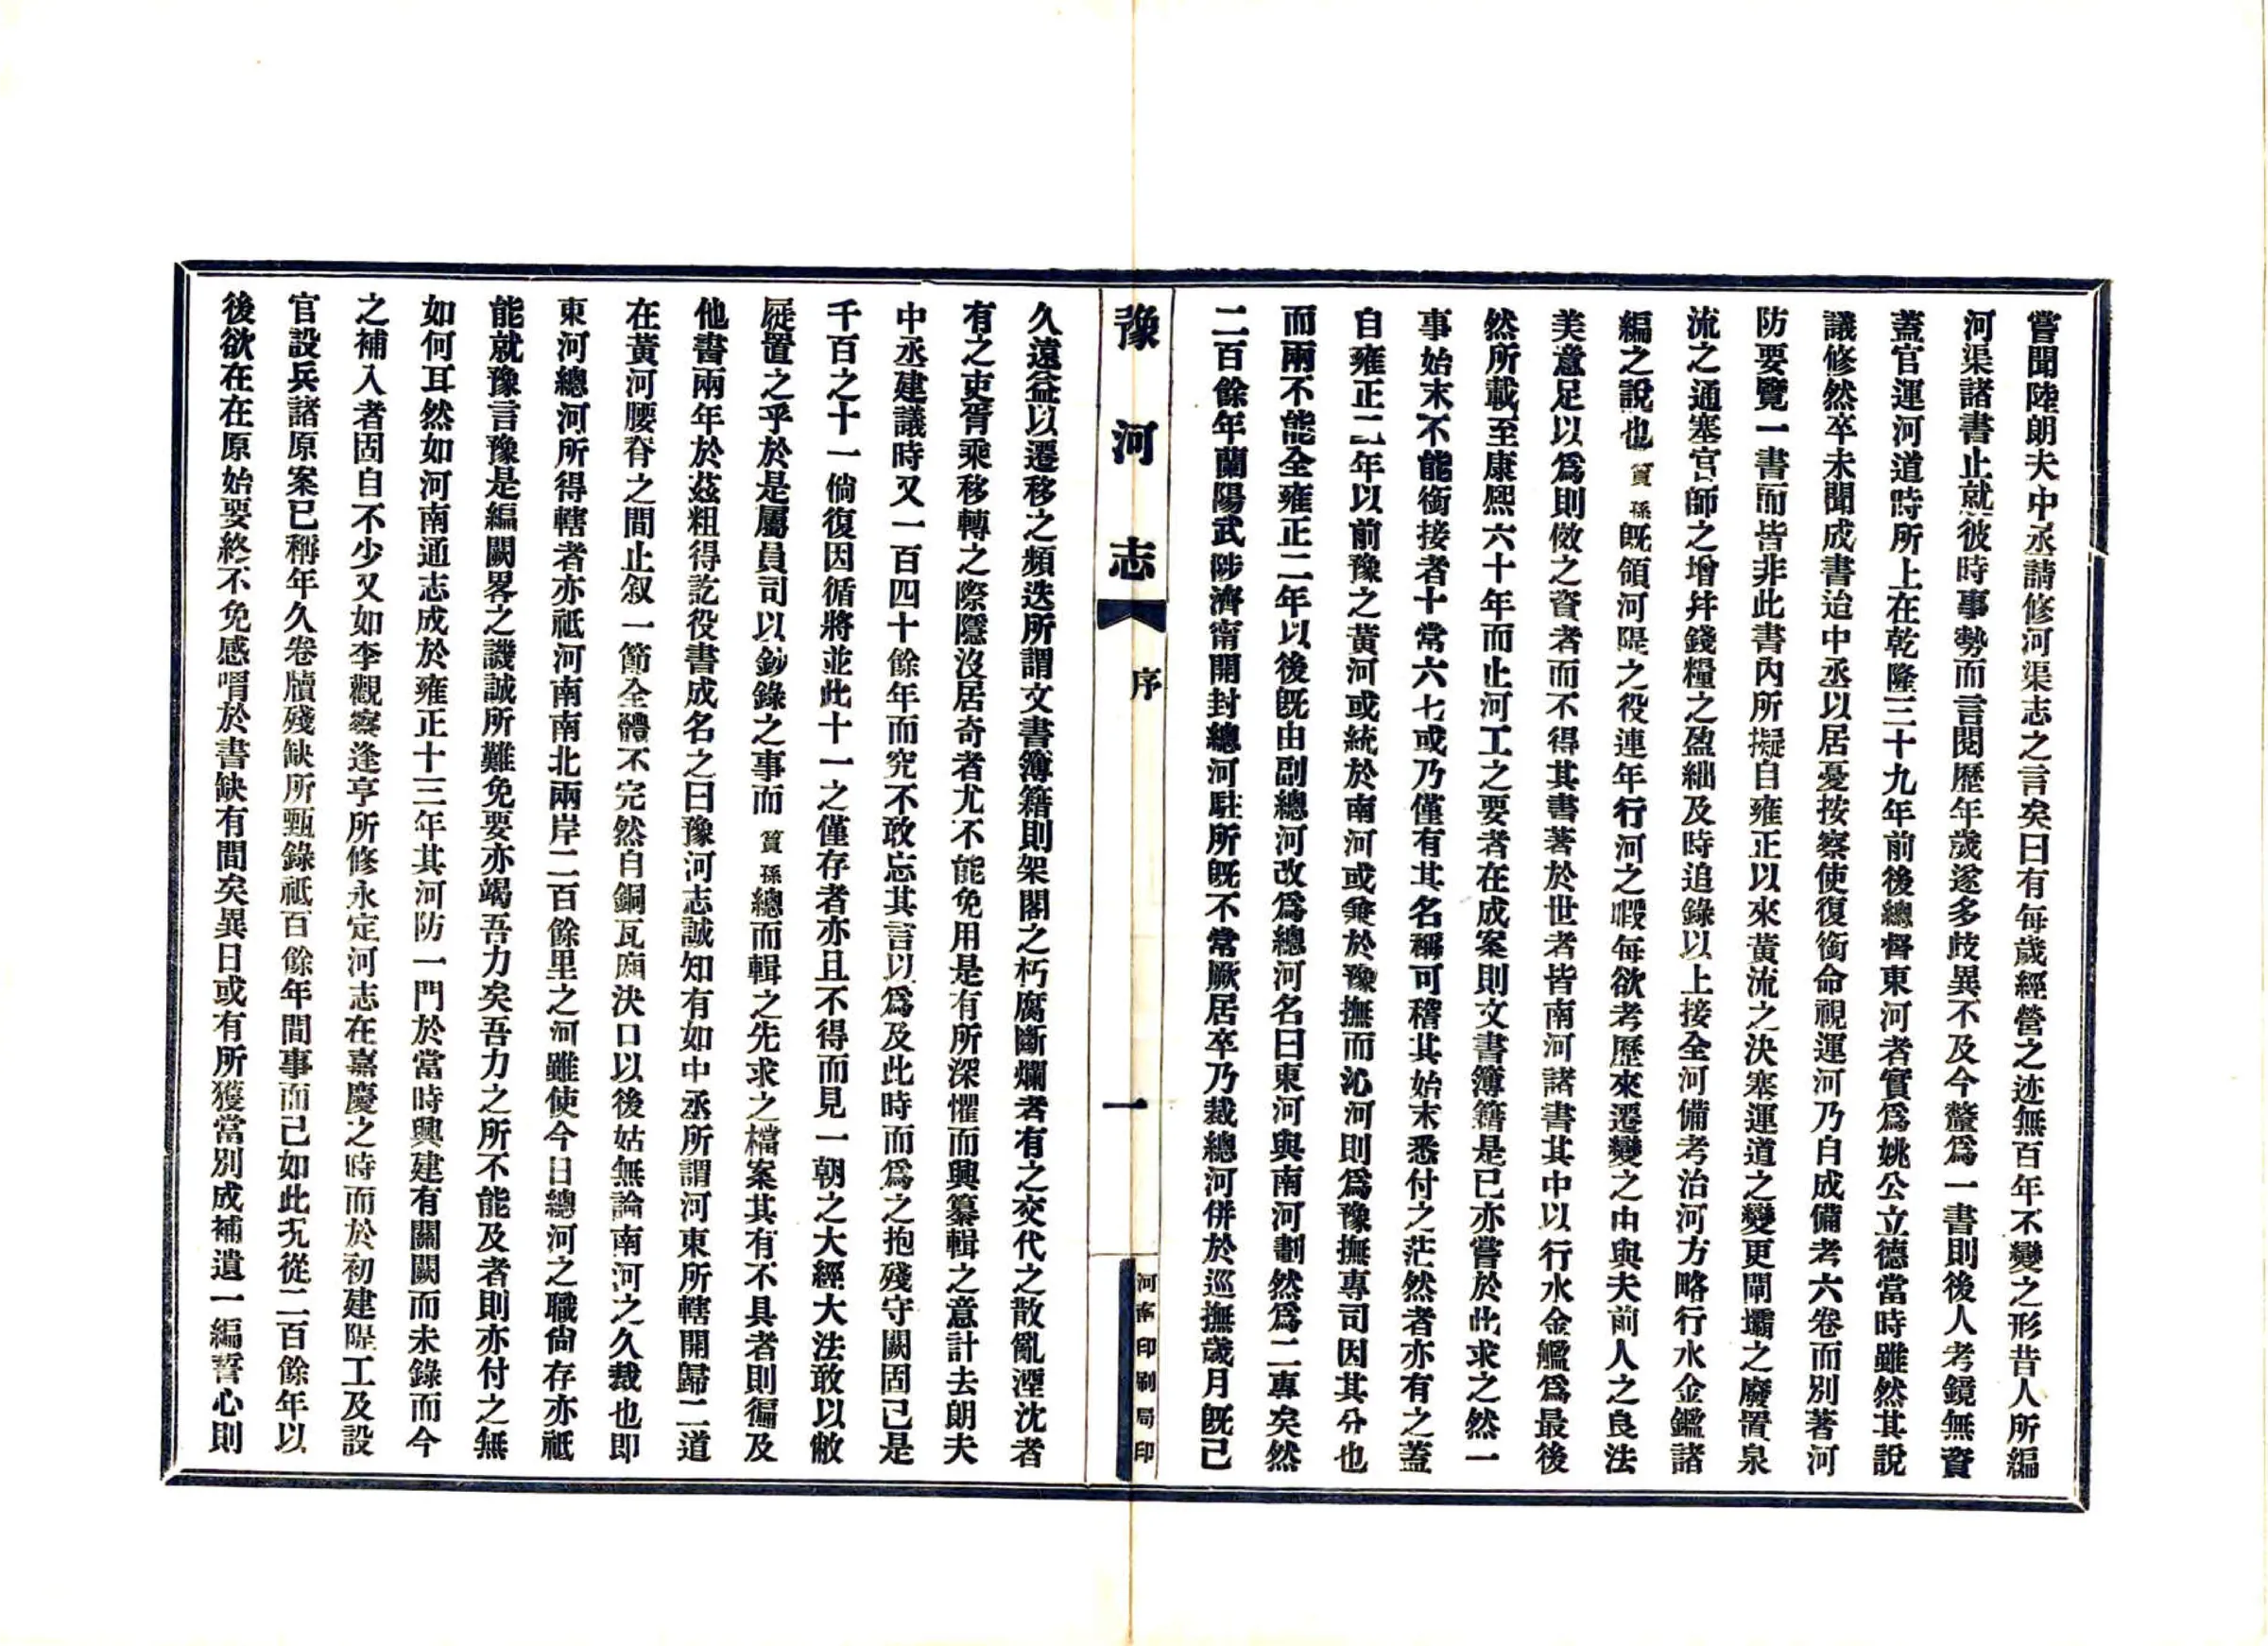 嘗聞陸朗夫中丞請修河渠志之言矣曰有每歲經營之迹無百年不變之形昔人所編
河渠諸書止就彼時事勢而言閱歷年歲遂多歧異不及今釐爲一書則後人考鏡無資
蓋官運河道時所上在乾隆三十九年前後總督東河者實爲姚公立德當時雖然其說
議修然卒未聞成書迨中丞以居憂按察使復銜命視運河乃自成備考六卷而別著河
防要覽一書而皆非此書內所擬自雍正以來黃流之決塞運道之變更閘壩之廢置泉
流之通塞官師之增幷錢糧之盈絀及時追錄以上接全河備考治河方略行水金鑑諸
編之說也篔孫既領河隄之役連年行河之暇每欲考歷來遷變之由與夫前人之良法
美意足以爲則傚之資者而不得其書著於世者皆南河諸書其中以行水金鑑爲最後
然所載至康熙六十年而止河工之要者在成案則文書簿籍是已亦嘗於此求之然一
事始末不能銜接者十常六七或乃僅有其名稱可稽其始末悉付之茫然者亦有之蓋
自雍正二年以前豫之黃河或統於南河或兼於豫撫而沁河則爲豫撫專司因其分也
而兩不能全雍正二年以後既由副總河改爲總河名曰東河與南河劃然爲二專矣然
二百餘年蘭陽武陟濟甯開封總河駐所既不常厥居卒乃裁總河併於巡撫歲月既已
豫河志
序
一
河南印刷局印
久遠益以遷移之頻迭所謂文書簿籍則架閣之朽腐斷爛者有之交代之散亂湮沈者
有之吏胥乘移轉之際隱沒居奇者尤不能免用是有所深懼而興纂輯之意計去朗夫
中丞建議時又一百四十餘年而究不敢忘其言以爲及此時而爲之抱殘守闕固已是
千百之十一倘復因循將並此十一之僅存者亦且不得而見一朝之大經大法敢以敝
屣置之乎於是屬員司以鈔錄之事而篔孫總而輯之先求之檔案其有不具者則徧及
他書兩年於茲粗得訖役書成名之曰豫河志誠知有如中丞所謂河東所轄開歸二道
在黃河腰脊之間止叙一節全體不完然自銅瓦廂決口以後姑無論南河之久裁也即
東河總河所得轄者亦祗河南南北兩岸二百餘里之河雖使今日總河之職尙存亦祗
能就豫言豫是編闕畧之譏誠所難免要亦竭吾力矣吾力之所不能及者則亦付之無
如何耳然如河南通志成於雍正十三年其河防一門於當時興建有關闕而未錄而今
之補入者固自不少又如李觀察逢亨所修永定河志在嘉慶之時而於初建隄工及設
官設兵諸原案已稱年久卷牘殘缺所甄錄祗百餘年間事而已如此況從二百餘年以
後欲在在原始要終不免感喟於書缺有間矣異日或有所獲當別成補遺一編誓心則